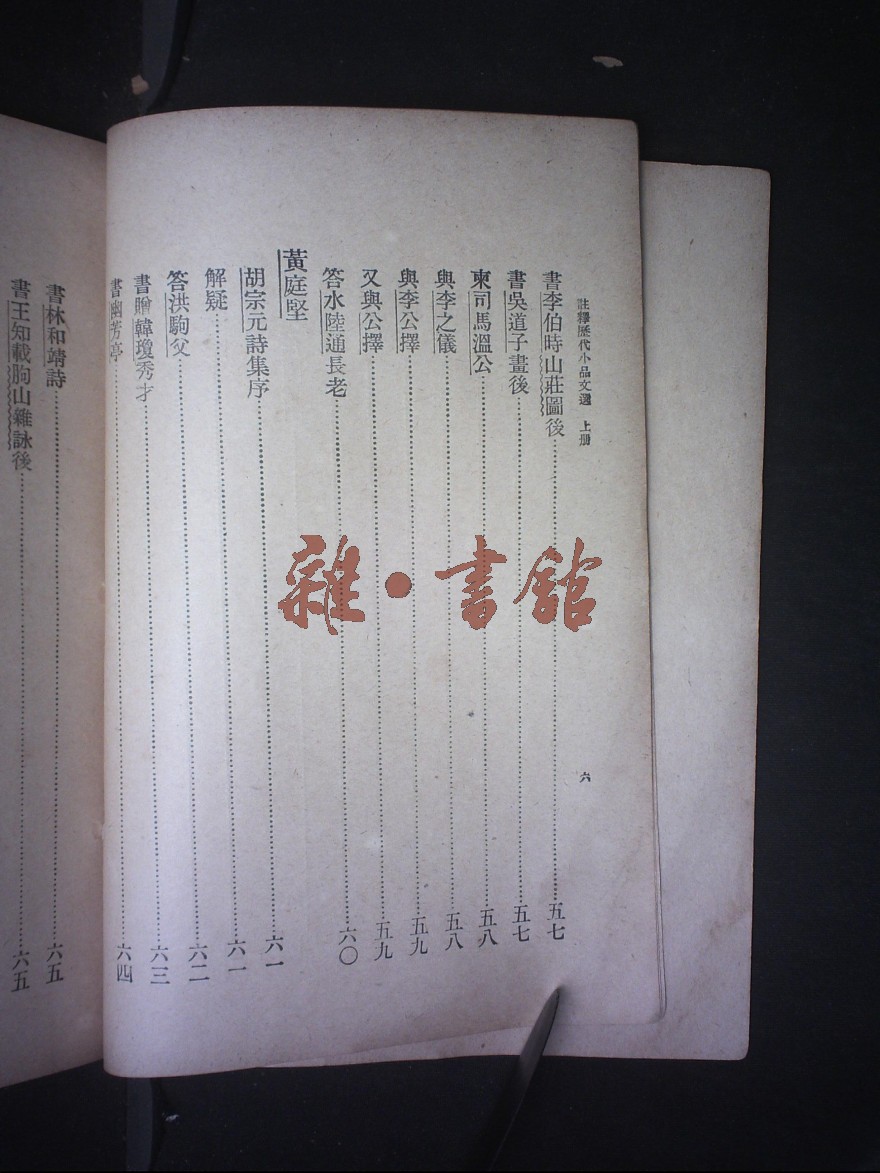 註釋歷代小品文選 上册
六
書李伯時山莊圖後……五七
書吳道子畫後……五七
柬司馬溫公……五八
與李之儀……五八
與李公擇……五九
又與公擇……五九
答水陸通長老……六〇
黃庭堅
胡宗元詩集序……六一
解疑……六一
答洪駒父……六二
書贈韓瓊秀才……六三
書幽芳亭……六四
書林和靖詩……六五
書王知載朐山雜詠後……六五
雜·書館